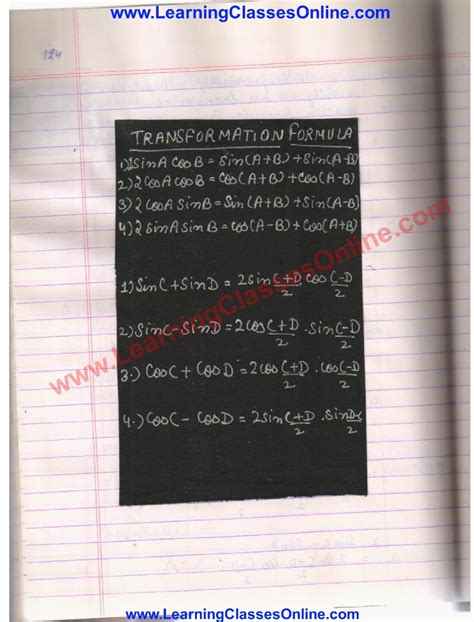 www.LearningClassesOnline.com
124
TRANSFORMATION FORMULA
1) 2SinA CosB = Sin(A+B) + Sin(A-B)
2) 2 CosA CosB = Cos(A+B) + Cos(A-B)
3) 2 CosA SinB = Sin(A+B) + Sin(A-B)
4) 2 SinA SinB = Cos(A-B) + Cos(A+B)
1) SinC + SinD = 2Sin C+D/2 Cos C-D/2
2) SinC - SinD = 2Cos C+D/2 . Sin C-D/2
3.) CosC + CosD = 2Cos C+D/2 . Cos C-D/2
4.) CosC - CosD = 2Sin C+D/2 . Sin D-C/2
www.LearningClassesOnline.com
www.LearningClassesOnline.com